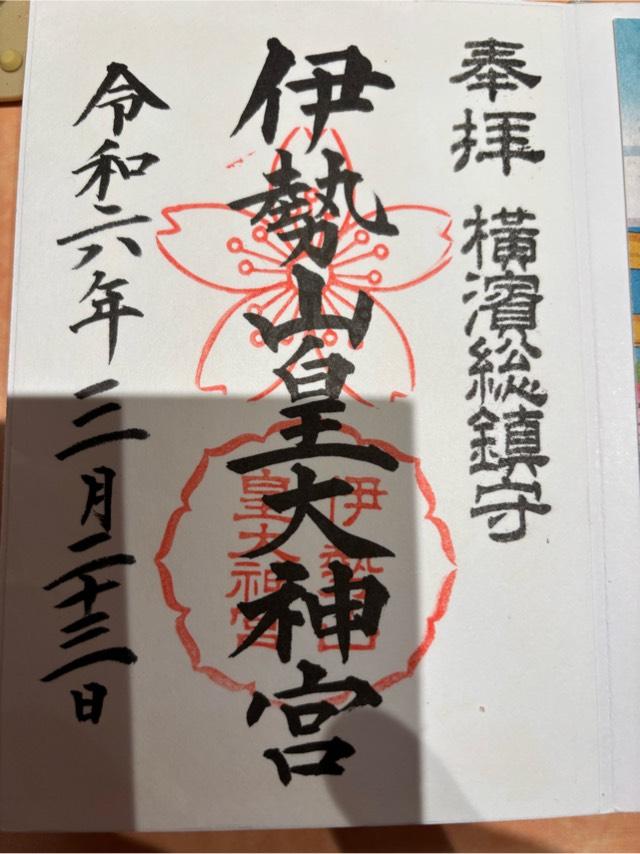 奉拝 横濱総鎮守
伊勢山皇大神宮
伊勢山
皇大神宮
令和六年 三月二十三日